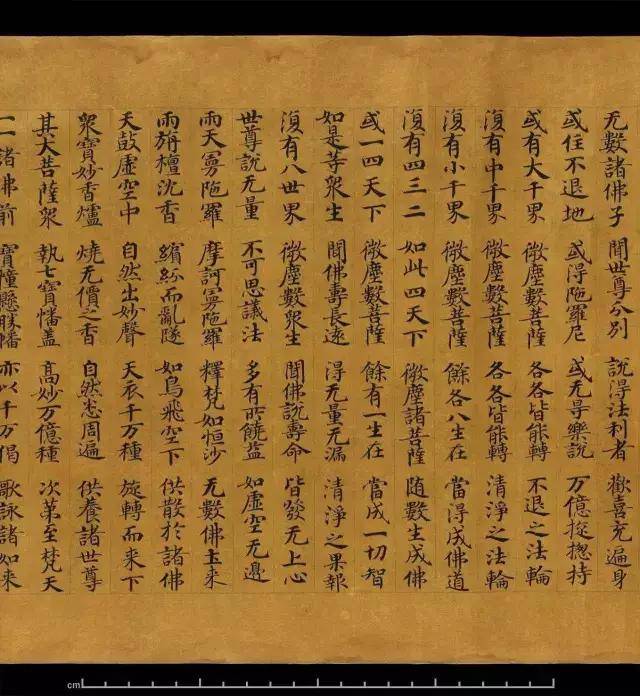 无數諸佛子 聞世尊分別 說得法利者 歡喜充遍身
或住不退地 或得陁羅尼 或无㝵樂說 万億㨀揔持
或有大千界 微塵數菩薩 各各皆能轉 不退之法輪
復有中千界 微塵數菩薩 各各皆能轉 清淨之法輪
復有小千界 微塵數菩薩 餘各八生在 當得成佛道
復有四三二 如此四天下 微塵諸菩薩 隨數生成佛
或一四天下 微塵數菩薩 餘有一生在 當成一切智
如是等衆生 聞佛壽長遠 得无量无漏 清淨之果報
復有八世界 微塵數衆生 聞佛說壽命 皆發无上心
世尊說无量 不可思議法 多有所饒益 如虛空无邊
雨天㝵陁羅 摩訶㝵陁羅 釋梵如恒沙 无數佛土來
雨旃檀沈香 繽紛而亂墜 如鳥飛空下 供散於諸佛
天鼓虛空中 自然出妙聲 天衣千万種 旋轉而来下
衆寶妙香爐 燒无價之香 自然悉周遍 供養諸世尊
其大菩薩衆 執七寶幡盖 高妙万億種 次第至梵天
一一諸佛前 寶幢懸勝幡 亦以千万偈 歌詠諸如来
cm